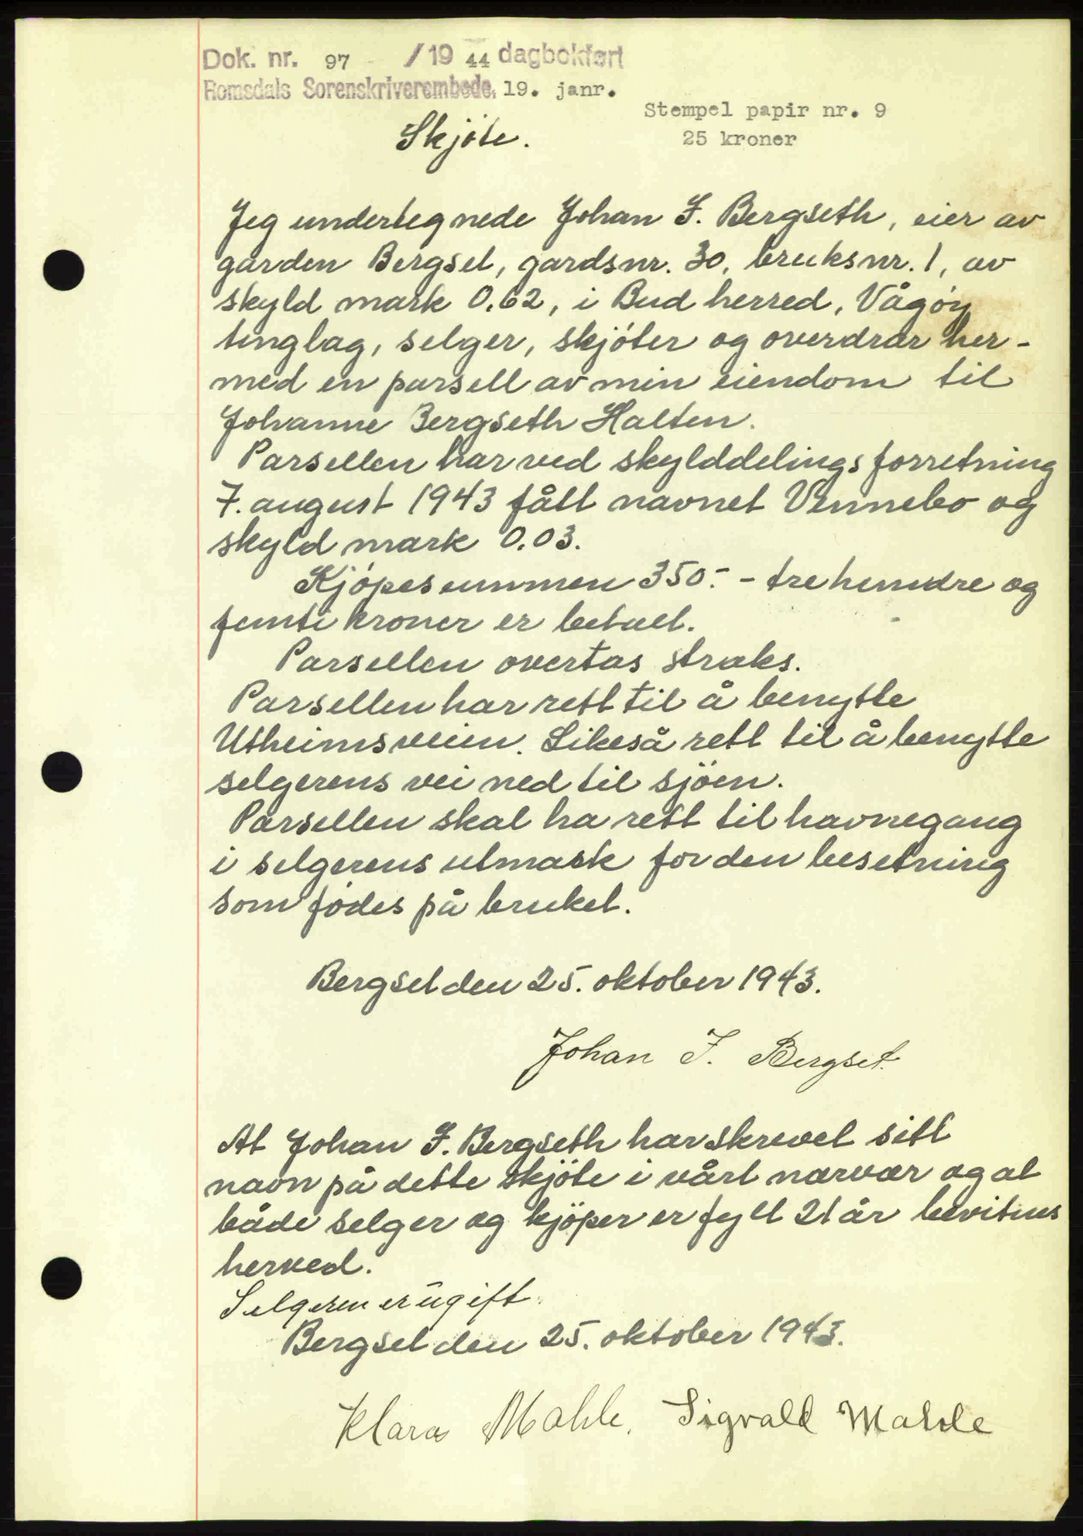 Dok. nr. 97 / 19 44 dagbokført
Romsdals Sorenskriverembede, 19. janr.
Stempel papir nr. 9
25 kroner
Skjøte.
Jeg undertegnede Johan J. Bergseth, eier av
garden Bergset, gardsnr. 30, bruksnr. 1, av
skyld mark 0.62, i Bud herred, Vågøy
tinglag, selger, skjøter og overdrar her-
med en parsell av min eiendom til
Johanne Bergseth Halten.
Parsellen har ved skylddelingsforretning
7. august 1943 fått navnet Vennebo og
skyld mark 0.03.
Kjøpesummen 350.- - tre hundre og
femti kroner er betalt.
Parsellen overtas straks.
Parsellen har rett til å benytte
Utheimsveien. Likeså rett til å benytte
selgerens vei ned til sjöen.
Parsellen skal ha rett til havnegang
i selgerens utmark for den besetning
som fødes på bruket.
Bergset den 25. oktober 1943.
Johan J. Bergset
At Johan J. Bergseth har skrevet sitt
navn på dette skjøte i vårt nærvær og at
både selger og kjöper er fylt 21 år bevitnes
herved.
Selgeren er ugift.
Bergset den 25. oktober 1943.
Klara Mahle. Sigvald Mahle